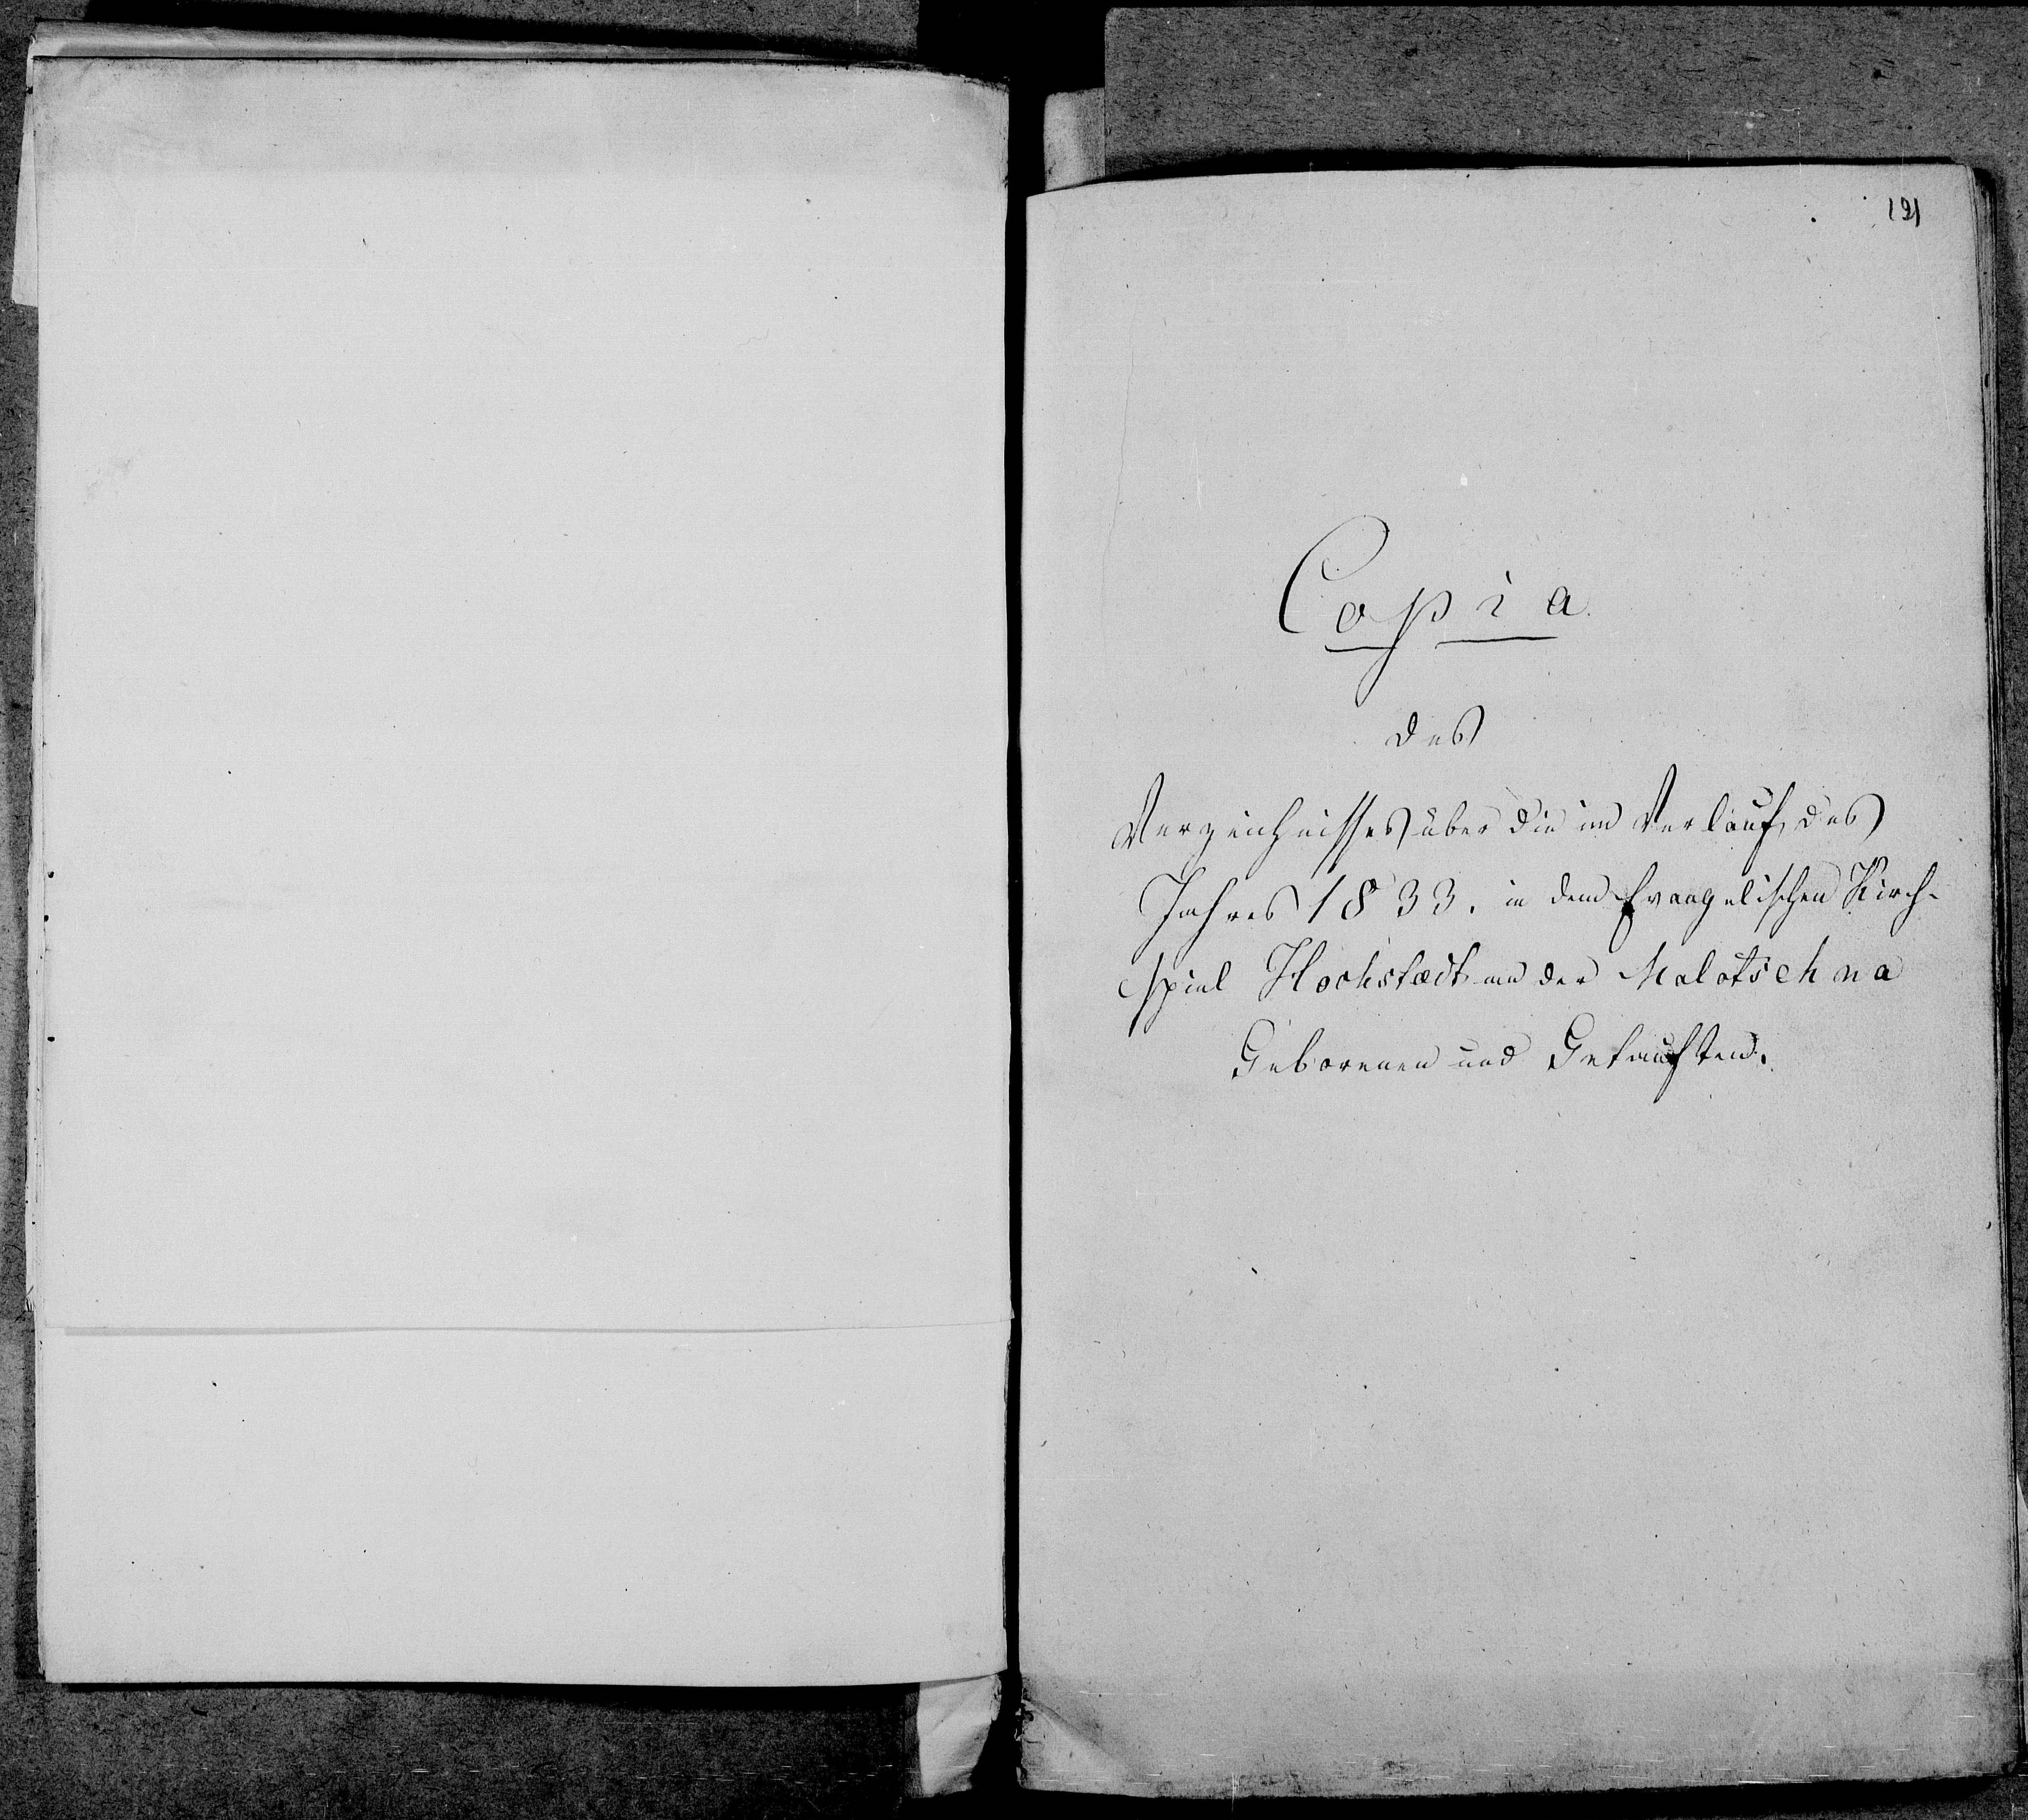 121
Copia.
des
Verzeichnisses über die im Verlauf des
Jahres 1833. in dem Evangelischen Kirch-
spiel Hochstædt an der Malotschna
Geborenen und Getauften.